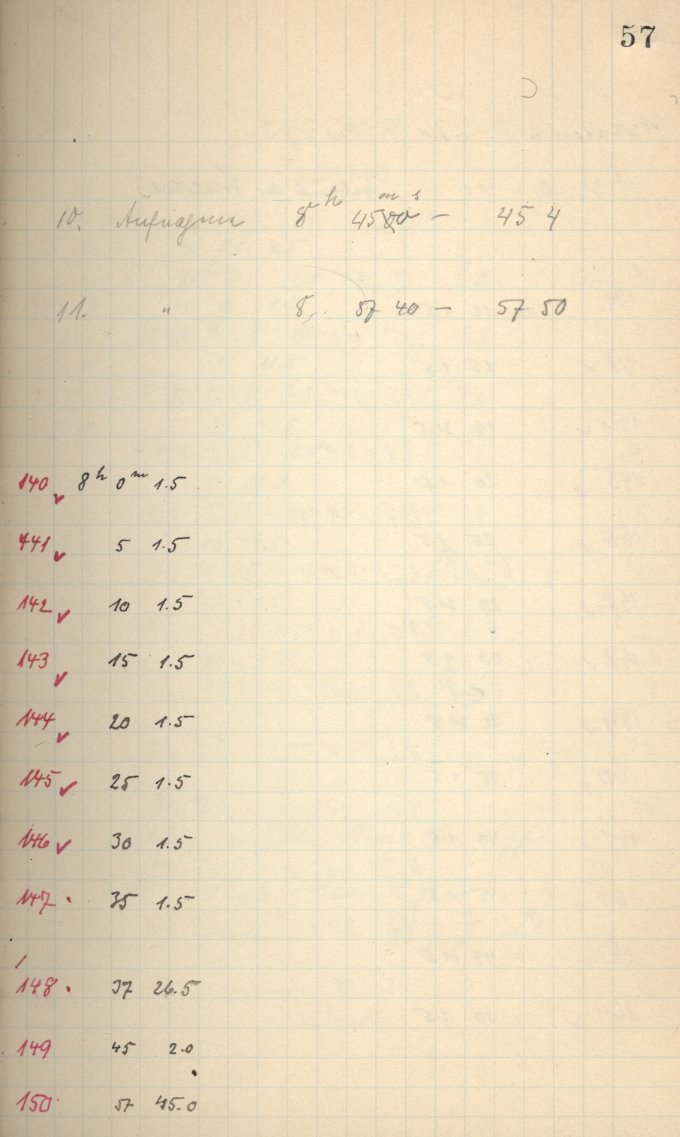 57
10. Aufnahme 8 h 45 m 00 s — 45 4
11. " 8 57 40 — 57 50
140 8 h 0 m 1.5
141 5 1.5
142 10 1.5
143 15 1.5
144 20 1.5
145 25 1.5
146 30 1.5
147 35 1.5
148 37 26.5
149 45 2.0
150 57 45.0